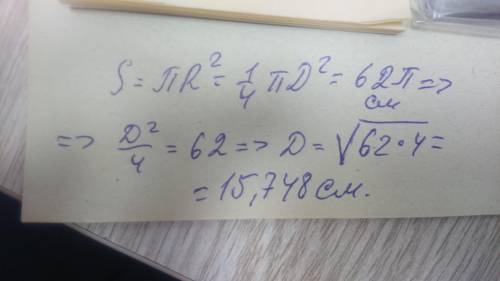 S = πR² = 1/4 πD² = 62π см =>
=> D²/4 = 62 => D = √(62·4) =
= 15,748 см.